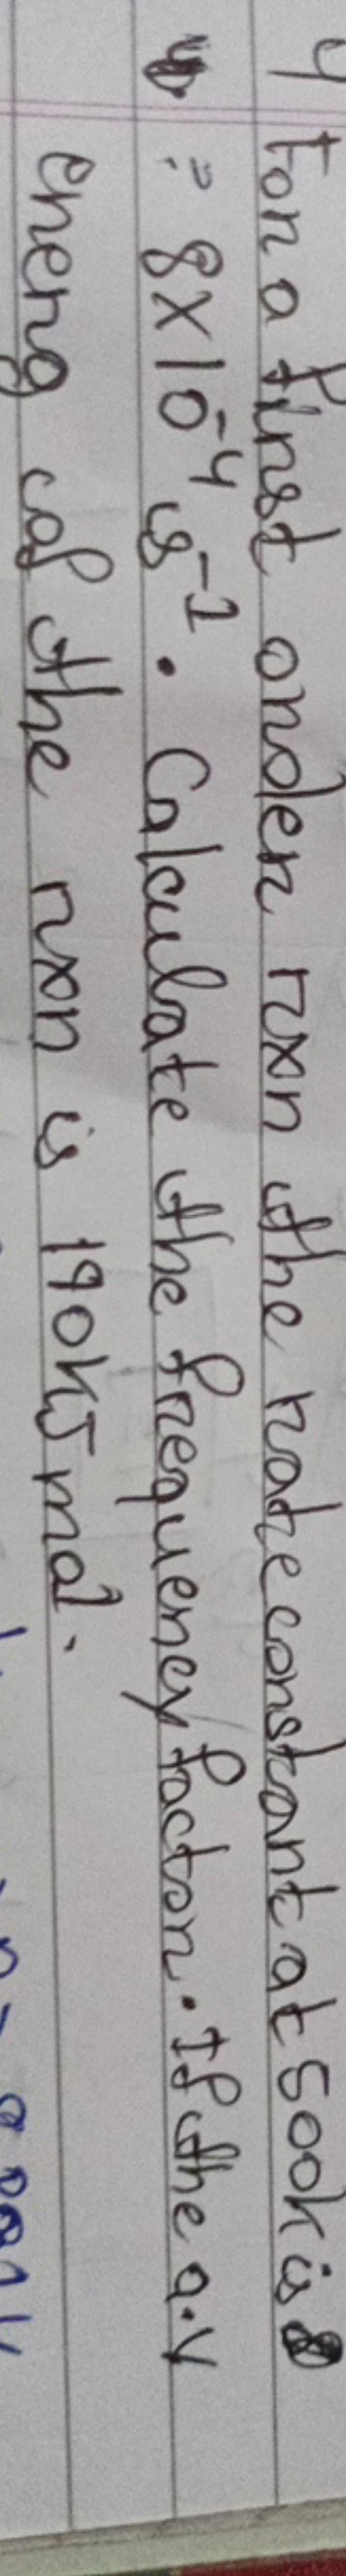 4 For a first order rxn the rate constant at 500k is
= 8×10⁻⁴ s⁻¹. Calculate the frequency factor. If the a.v
energ of the rxn is 190kJ mol.